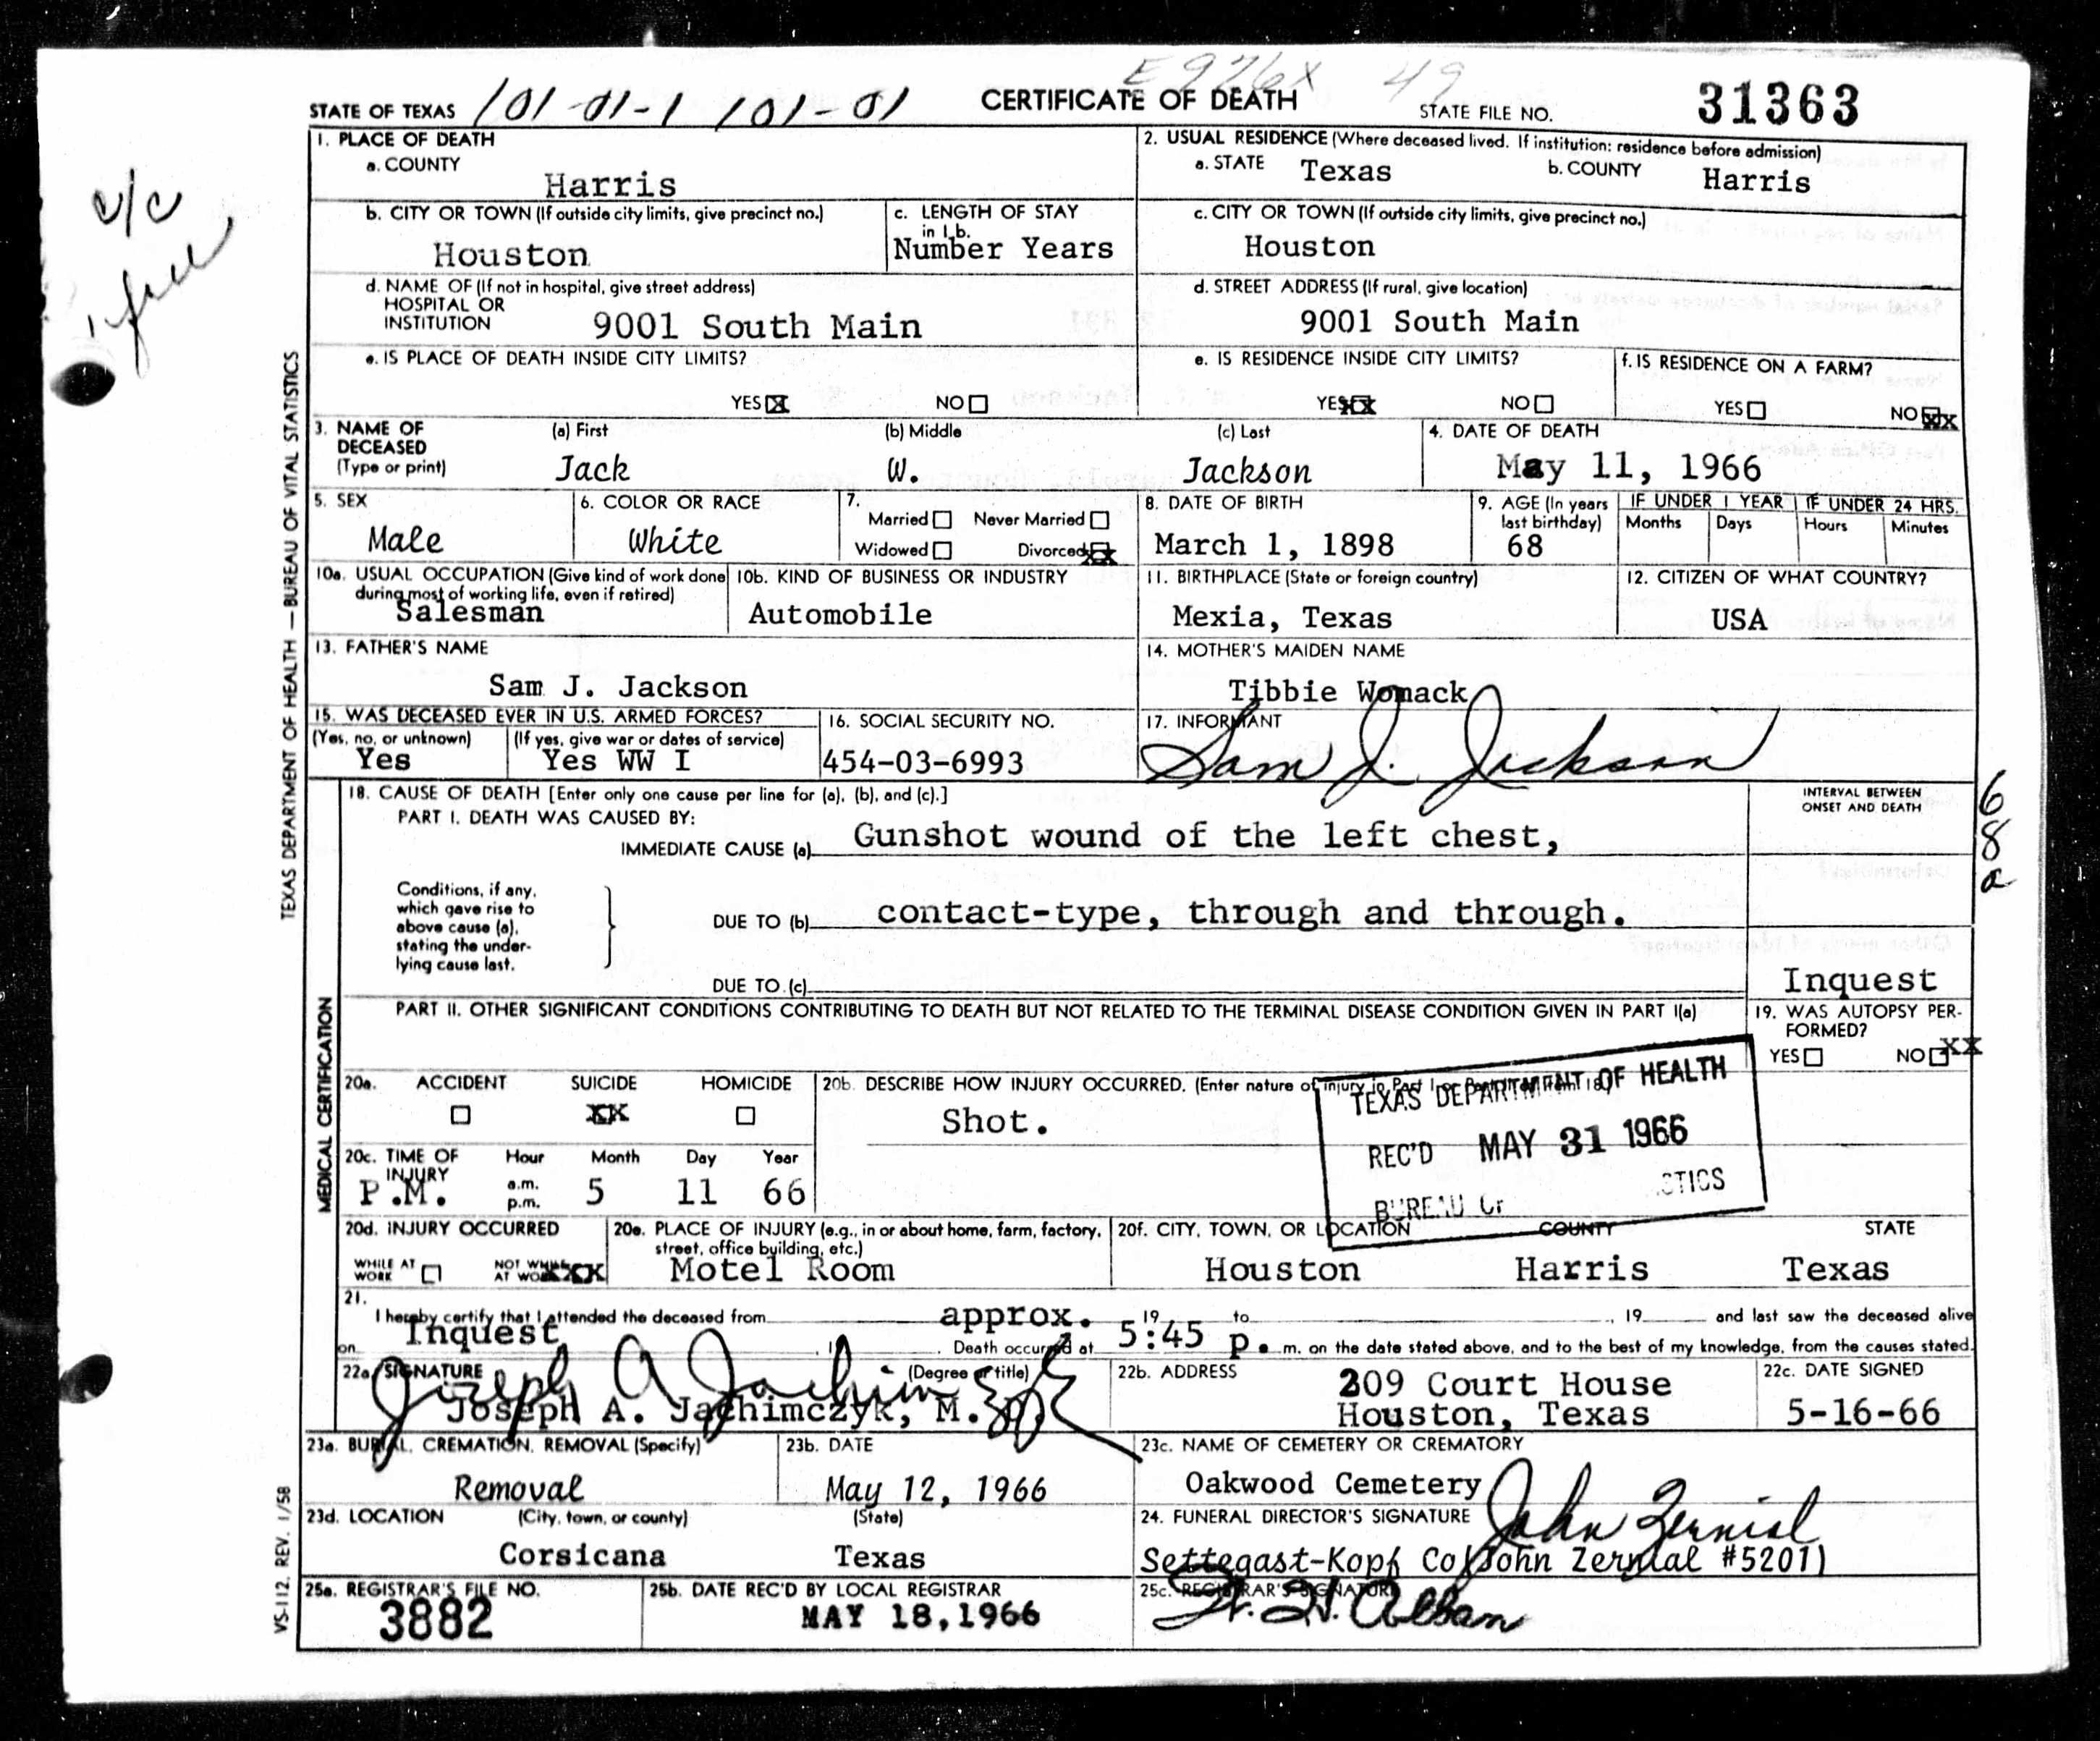 E926X 49
STATE OF TEXAS 101-01-1 101-01 CERTIFICATE OF DEATH STATE FILE NO. 31363
1. PLACE OF DEATH
a. COUNTY
Harris
2. USUAL RESIDENCE (Where deceased lived. If institution: residence before admission)
a. STATE Texas b. COUNTY Harris
b. CITY OR TOWN (If outside city limits, give precinct no.)
Houston
c. LENGTH OF STAY
in 1.b.
Number Years
c. CITY OR TOWN (If outside city limits, give precinct no.)
Houston
d. NAME OF (If not in hospital, give street address)
HOSPITAL OR
INSTITUTION 9001 South Main
d. STREET ADDRESS (If rural, give location)
9001 South Main
e. IS PLACE OF DEATH INSIDE CITY LIMITS?
YES X NO
e. IS RESIDENCE INSIDE CITY LIMITS?
YES XX NO
f. IS RESIDENCE ON A FARM?
YES NO XX
3. NAME OF
DECEASED
(Type or print)
(a) First
Jack
(b) Middle
W.
(c) Last
Jackson
4. DATE OF DEATH
May 11, 1966
5. SEX
Male
6. COLOR OR RACE
White
7.
Married Never Married
Widowed Divorced XX
8. DATE OF BIRTH
March 1, 1898
9. AGE (In years
last birthday)
68
IF UNDER 1 YEAR
Months Days
IF UNDER 24 HRS.
Hours Minutes
10a. USUAL OCCUPATION (Give kind of work done
during most of working life, even if retired)
Salesman
10b. KIND OF BUSINESS OR INDUSTRY
Automobile
11. BIRTHPLACE (State or foreign country)
Mexia, Texas
12. CITIZEN OF WHAT COUNTRY?
USA
13. FATHER'S NAME
Sam J. Jackson
14. MOTHER'S MAIDEN NAME
Tibbie Womack
15. WAS DECEASED EVER IN U.S. ARMED FORCES?
(Yes, no, or unknown) (If yes, give war or dates of service)
Yes Yes WW I
16. SOCIAL SECURITY NO.
454-03-6993
17. INFORMANT
Sam J. Jackson
18. CAUSE OF DEATH [Enter only one cause per line for (a), (b), and (c).]
PART I. DEATH WAS CAUSED BY:
IMMEDIATE CAUSE (a) Gunshot wound of the left chest,
INTERVAL BETWEEN
ONSET AND DEATH
Conditions, if any,
which gave rise to
above cause (a),
stating the under-
lying cause last.
DUE TO (b) contact-type, through and through.
DUE TO (c)
Inquest
PART II. OTHER SIGNIFICANT CONDITIONS CONTRIBUTING TO DEATH BUT NOT RELATED TO THE TERMINAL DISEASE CONDITION GIVEN IN PART I(a)
19. WAS AUTOPSY PER-
FORMED?
YES NO XX
20a. ACCIDENT SUICIDE HOMICIDE
XX
20b. DESCRIBE HOW INJURY OCCURRED. (Enter nature of injury in Part I or
Shot.
TEXAS DEPARTMENT OF HEALTH
REC'D MAY 31 1966
BUREAU OF
20c. TIME OF
INJURY
Hour Month Day Year
P.M. a.m.
p.m. 5 11 66
20d. INJURY OCCURRED
WHILE AT
WORK
NOT WHILE
AT WORK XXX
20e. PLACE OF INJURY (e.g., in or about home, farm, factory,
street, office building, etc.)
Motel Room
20f. CITY, TOWN, OR LOCATION COUNTY STATE
Houston Harris Texas
21.
I hereby certify that I attended the deceased from approx. 19 to , 19 and last saw the deceased alive
on Inquest , 1 . Death occurred at 5:45 p. m. on the date stated above, and to the best of my knowledge, from the causes stated.
22a. SIGNATURE (Degree or title)
Joseph A. Jachimczyk, M.D.
22b. ADDRESS
209 Court House
Houston, Texas
22c. DATE SIGNED
5-16-66
23a. BURIAL, CREMATION, REMOVAL (Specify)
Removal
23b. DATE
May 12, 1966
23c. NAME OF CEMETERY OR CREMATORY
Oakwood Cemetery
23d. LOCATION (City, town, or county) (State)
Corsicana Texas
24. FUNERAL DIRECTOR'S SIGNATURE John Zernial
Settegast-Kopf Co (John Zernial #5201)
25a. REGISTRAR'S FILE NO.
3882
25b. DATE REC'D BY LOCAL REGISTRAR
MAY 18, 1966
25c. REGISTRAR'S SIGNATURE
TEXAS DEPARTMENT OF HEALTH — BUREAU OF VITAL STATISTICS
MEDICAL CERTIFICATION
VS-112, REV. 1/58
68a